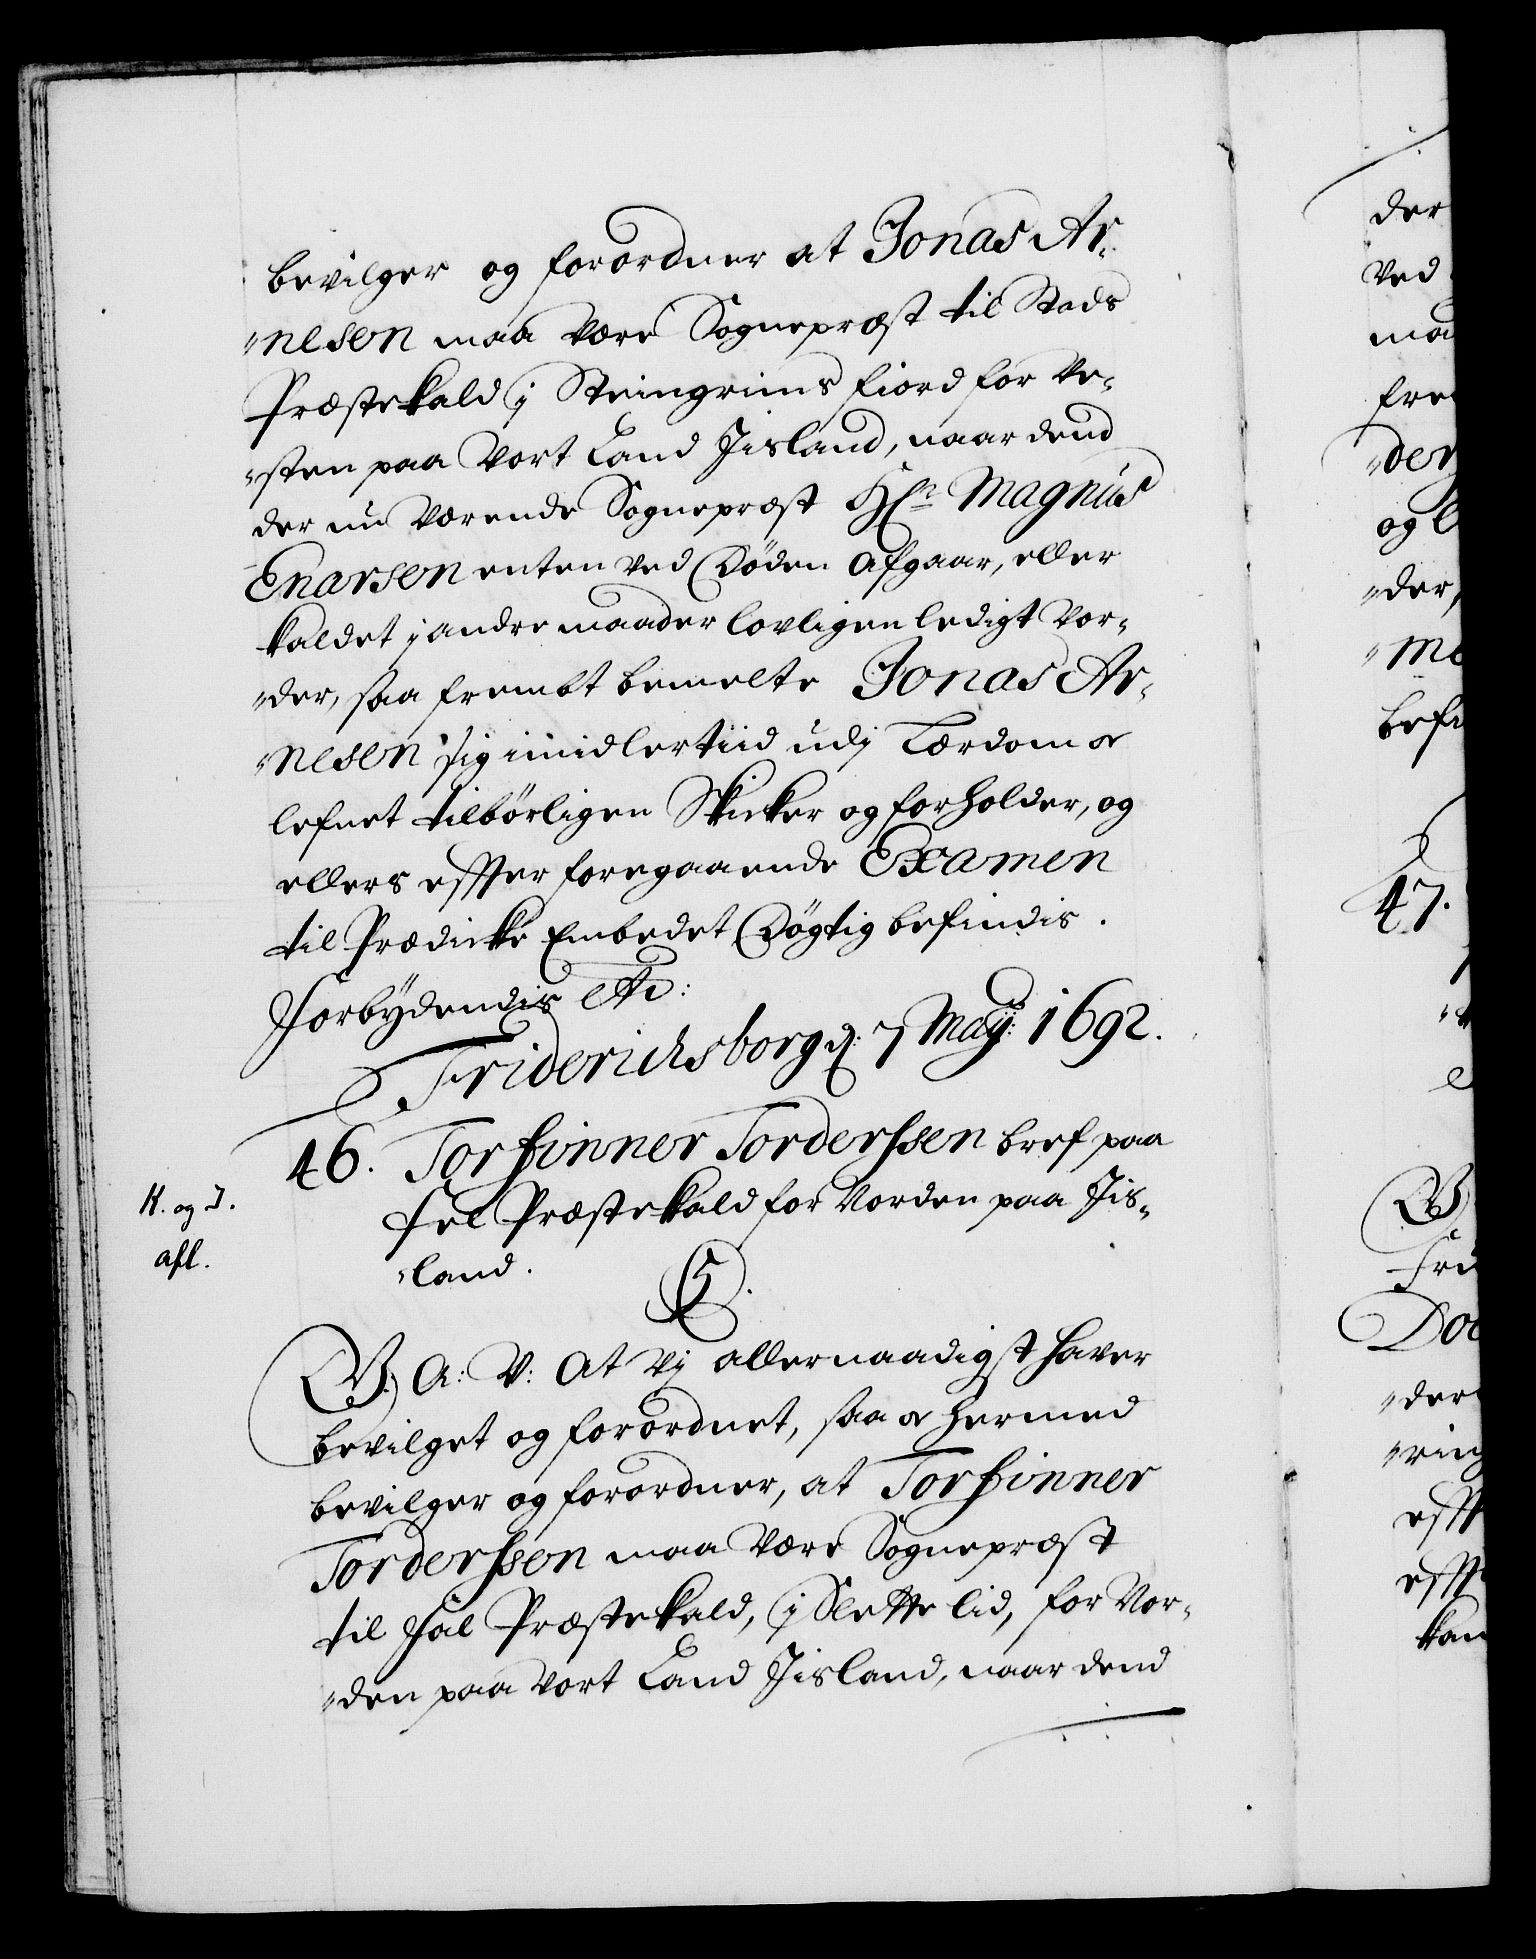 bevilger og forordner at Jonas Ar-
"nesen maa være Sognepræst til Stads
Præstekald j Steingrims fiord for Ve-
"sten paa Vort Land Jisland, naar dend
der nu værende Sognepræst Hr Magnus
Enarsen enten ved Døden afgaar, eller
kaldet j andre maader lovligen ledigt vor-
"der, saa frembt bemelte Jonas Ar-
"nesen sig imidlertiid udj Lærdom &
lefnet tilbørligen Skicker og forholder, og
ellers effter foregaaende Examen
til Prædicke Embedet Døgtig befindis.
Forbydendis etc:
Friderichsborg d: 7 Maij: 1692.
46. Torfinner Torderssen bref paa
Fel Præstekald for Norden paa Jis-
"land.
K. og I.
afl.
G.
G. A: V: At Vj allernaadigst haver
bevilget og forordnet, saa & hermed
bevilger og forordner, at Torfinner
Torderssen maa være Sognepræst
til Fel Præstekald, j Slettelid, for Nor-
"den paa vort Land Jisland, naar dend
der
ved
maa
"der
og
"der,
47.